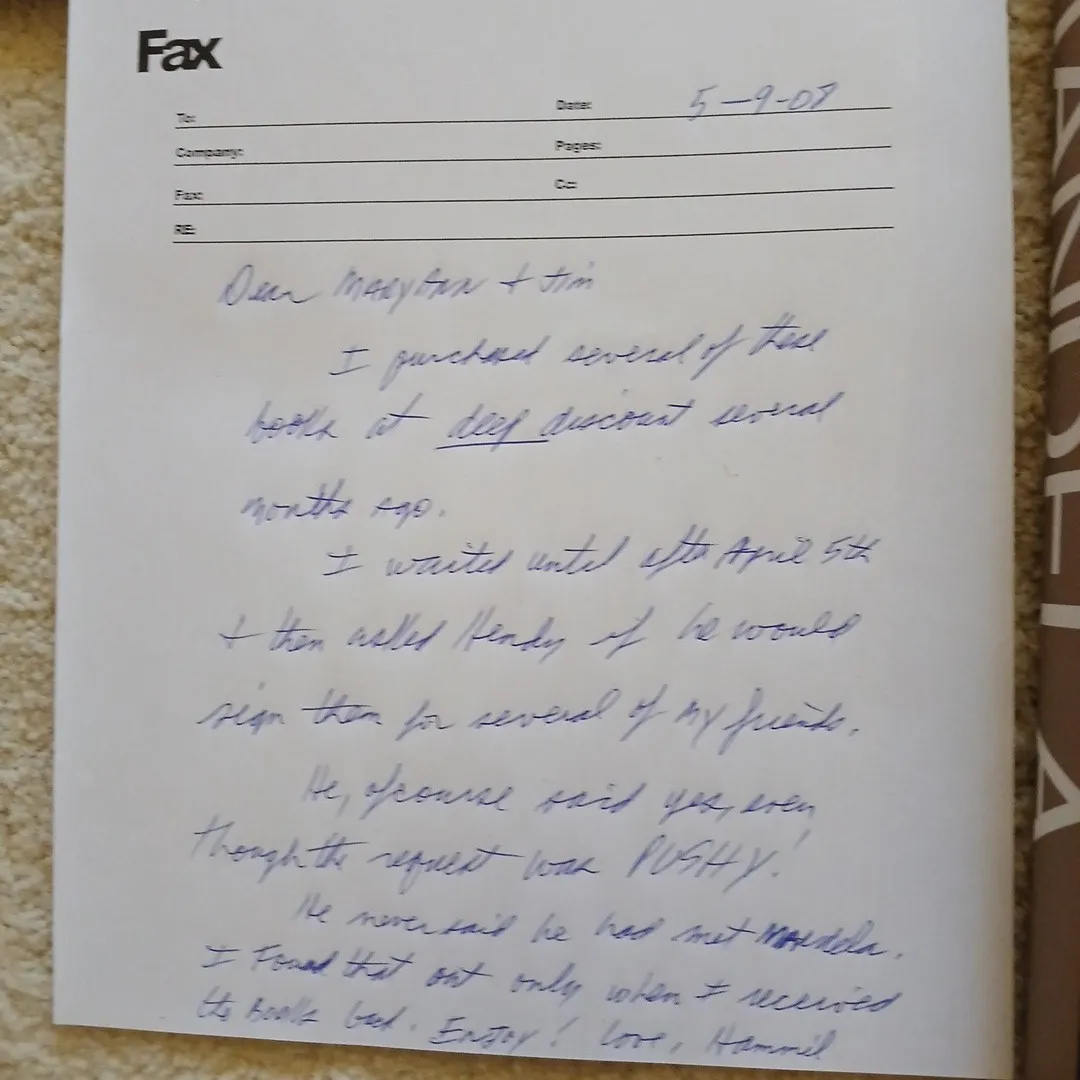 Fax
To: Date: 5-9-08
Company: Pages:
Fax: Cc:
RE:
Dear MARYANN + Jim
I purchased several of these
books at deep discount several
months ago.
I waited until after April 5th
+ then asked Hendy if he would
sign them for several of my friends.
He, ofcourse said yes, even
though the request was PUSHY!
He never said he had met Mandela.
I Found that out only when I received
the Books back. Enjoy! Love, Hammil